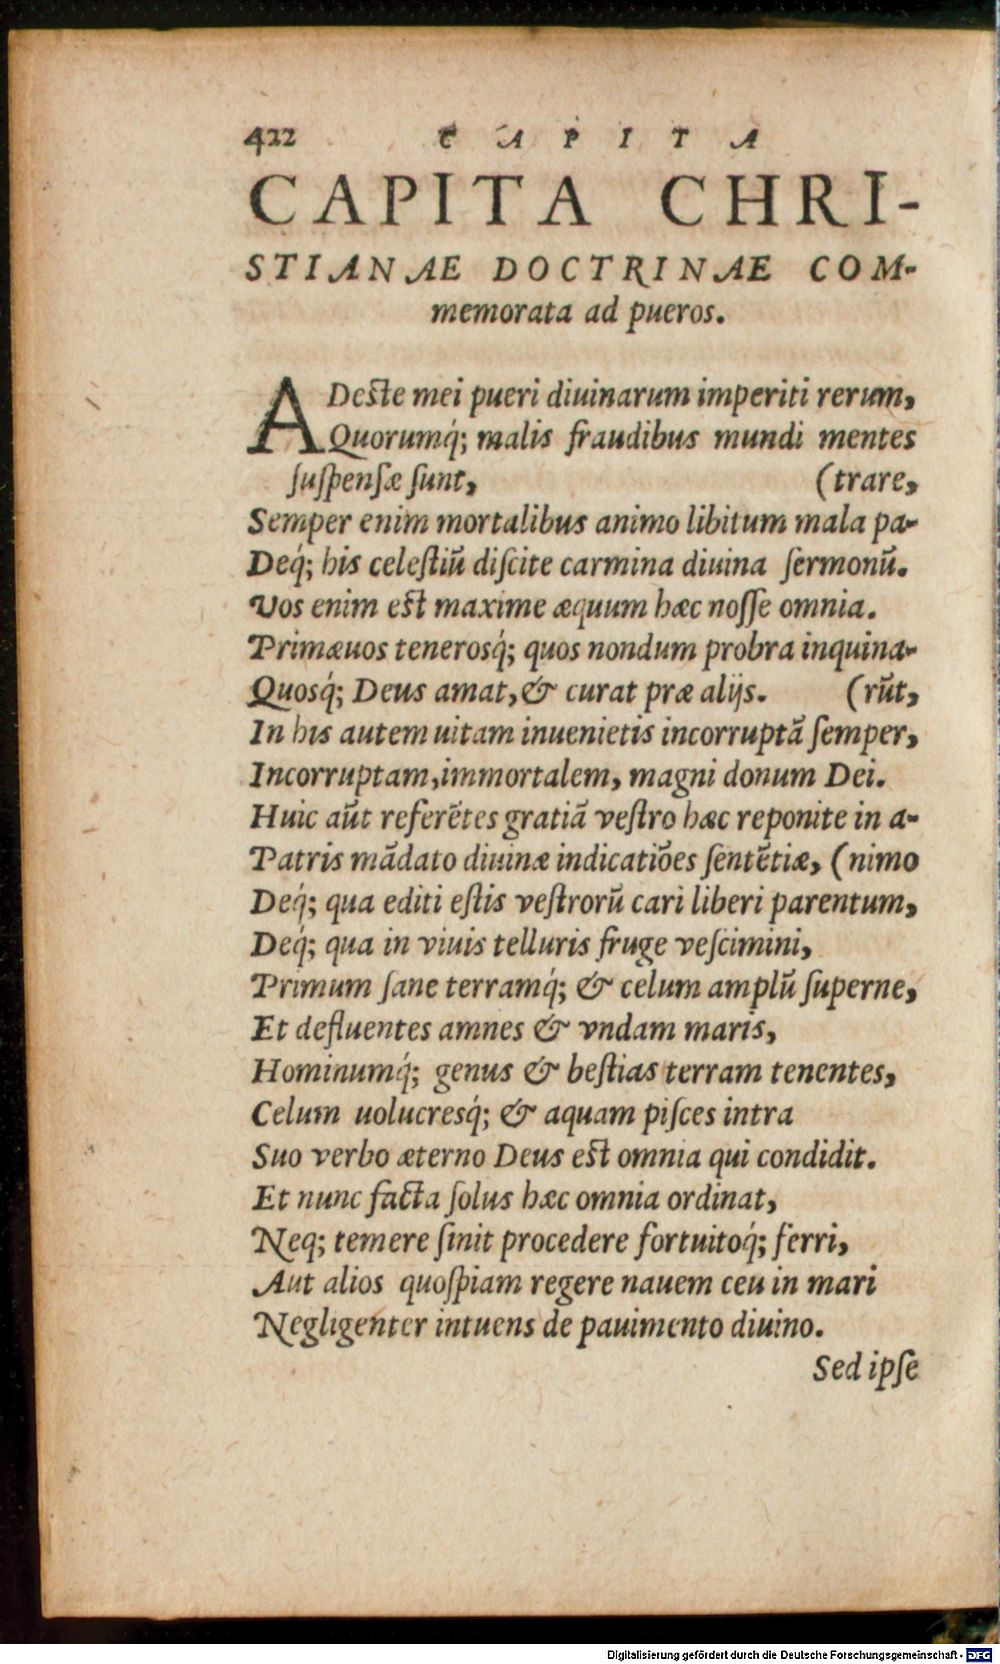 422 CAPITA
CAPITA CHRI-
STIANAE DOCTRINAE COM-
memorata ad pueros.
ADeste mei pueri diuinarum imperiti rerum,
Quorumq́; malis fraudibus mundi mentes
suspensæ sunt, (trare,
Semper enim mortalibus animo libitum mala pa-
Deq́; his celestiū discite carmina diuina sermonū.
Vos enim est maxime æquum hæc nosse omnia.
Primæuos tenerosq́; quos nondum probra inquina-
Quosq́; Deus amat, & curat præ alijs. (rūt,
In his autem uitam inuenietis incorruptā semper,
Incorruptam, immortalem, magni donum Dei.
Huic aūt referētes gratiā vestro hæc reponite in a-
Patris mādato diuinæ indicatiōes sentētiæ, (nimo
Deq́; qua editi estis vestrorū cari liberi parentum,
Deq́; qua in viuis telluris fruge vescimini,
Primum sane terramq́; & celum amplū superne,
Et defluentes amnes & vndam maris,
Hominumq́; genus & bestias terram tenentes,
Celum uolucresq́; & aquam pisces intra
Suo verbo æterno Deus est omnia qui condidit.
Et nunc facta solus hæc omnia ordinat,
Neq; temere sinit procedere fortuitoq́; ferri,
Aut alios quospiam regere nauem ceu in mari
Negligenter intuens de pauimento diuino.
Sed ipse
Digitalisierung gefördert durch die Deutsche Forschungsgemeinschaft - DFG